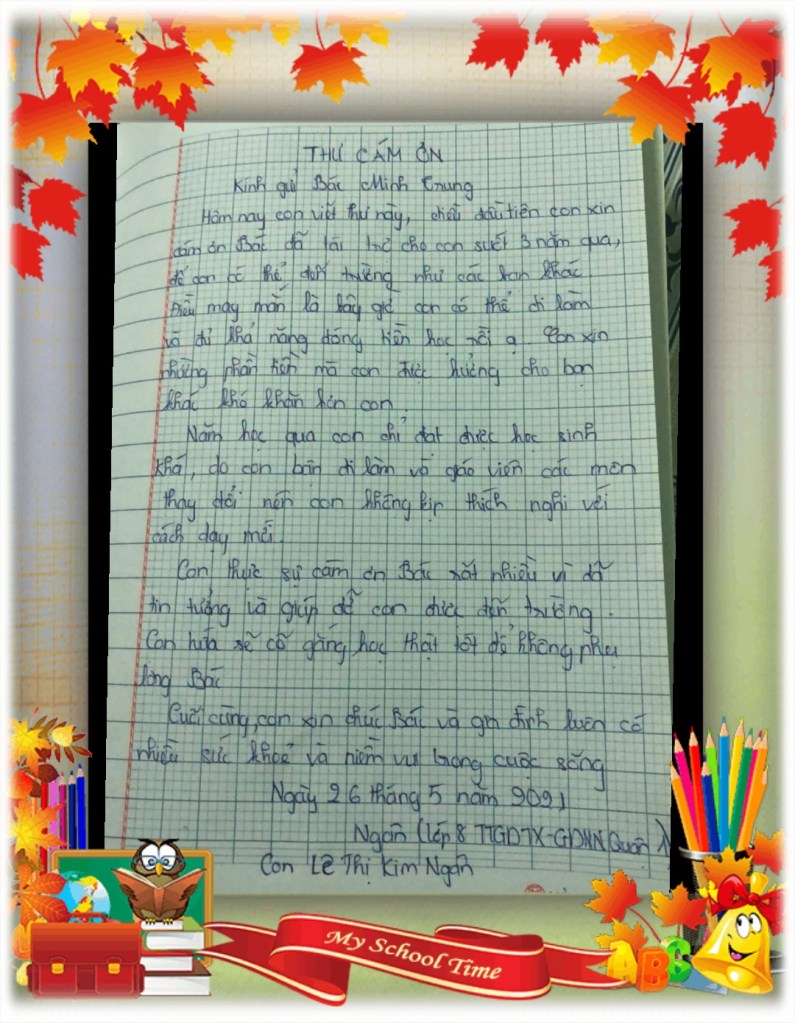 THƯ CÁM ƠN
Kính gửi Bác Minh Trung
Hôm nay con viết thư này, điều đầu tiên con xin
cám ơn Bác đã tài trợ cho con suốt 3 năm qua,
để con có thể đến trường như các bạn khác
Điều may mắn là bây giờ con có thể đi làm
và đủ khả năng đóng tiền học rồi ạ. Con xin
nhường phần tiền mà con được hưởng cho bạn
khác khó khăn hơn con.
Năm học qua con chỉ đạt được học sinh
khá, do con bận đi làm và giáo viên các môn
thay đổi nên con không kịp thích nghi với
cách dạy mới.
Con thực sự cám ơn Bác rất nhiều vì đã
tin tưởng và giúp đỡ con được đến trường.
Con hứa sẽ cố gắng học thật tốt để không phụ
lòng Bác
Cuối cùng, con xin chúc Bác và gia đình luôn có
nhiều sức khoẻ và niềm vui trong cuộc sống
Ngày 26 tháng 5 năm 2021
Ngân (Lớp 8 TTGDTX-GDNN Quận
Con Lê Thị Kim Ngân
My School Time
ABC